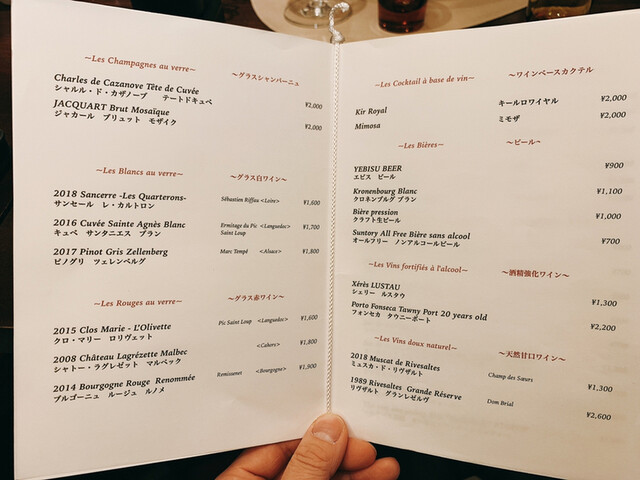 ~Les Champagnes au verre~ ~グラスシャンパーニュ
Charles de Cazanove Tête de Cuvée
シャルル・ド・カザノーブ テートドキュベ ¥2,000
JACQUART Brut Mosaïque
ジャカール ブリュット モザイク ¥2,000
~Les Blancs au verre~ ~グラス白ワイン~
2018 Sancerre -Les Quarterons- Sébastien Riffau <Loire> ¥1,600
サンセール レ・カルトロン
2016 Cuvée Sainte Agnès Blanc Ermitage du Pic Saint Loup <Languedoc> ¥1,700
キュベ サンタニエス ブラン
2017 Pinot Gris Zellenberg Marc Tempé <Alsace> ¥1,800
ピノグリ ツェレンベルグ
~Les Rouges au verre~ ~グラス赤ワイン~
2015 Clos Marie - L'Olivette Pic Saint Loup <Languedoc> ¥1,600
クロ・マリー ロリヴェット
2008 Château Lagrézette Malbec <Cahors> ¥1,800
シャトー・ラグレゼット マルベック
2014 Bourgogne Rouge Renommée Remissenet <Bourgogne> ¥1,900
ブルゴーニュ ルージュ ルノメ
~Les Cocktail à base de vin~ ~ワインベースカクテル
Kir Royal キールロワイヤル ¥2,000
Mimosa ミモザ ¥2,000
~Les Bières~ ~ビール~
YEBISU BEER ¥900
エビス ビール
Kronenbourg Blanc ¥1,100
クロネンブルグ ブラン
Bière pression ¥1,000
クラフト生ビール
Suntory All Free Bière sans alcool ¥700
オールフリー ノンアルコールビール
~Les Vins fortifiés à l'alcool~ ~酒精強化ワイン~
Xérès LUSTAU ¥1,300
シェリー ルスタウ
Porto Fonseca Tawny Port 20 years old ¥2,200
フォンセカ タウニーポート
~Les Vins doux naturel~ ~天然甘口ワイン~
2018 Muscat de Rivesaltes Champ des Sœurs ¥1,300
ミュスカ・ド・リヴザルト
1989 Rivesaltes Grande Réserve Dom Brial ¥2,600
リヴザルト グランレゼルヴ